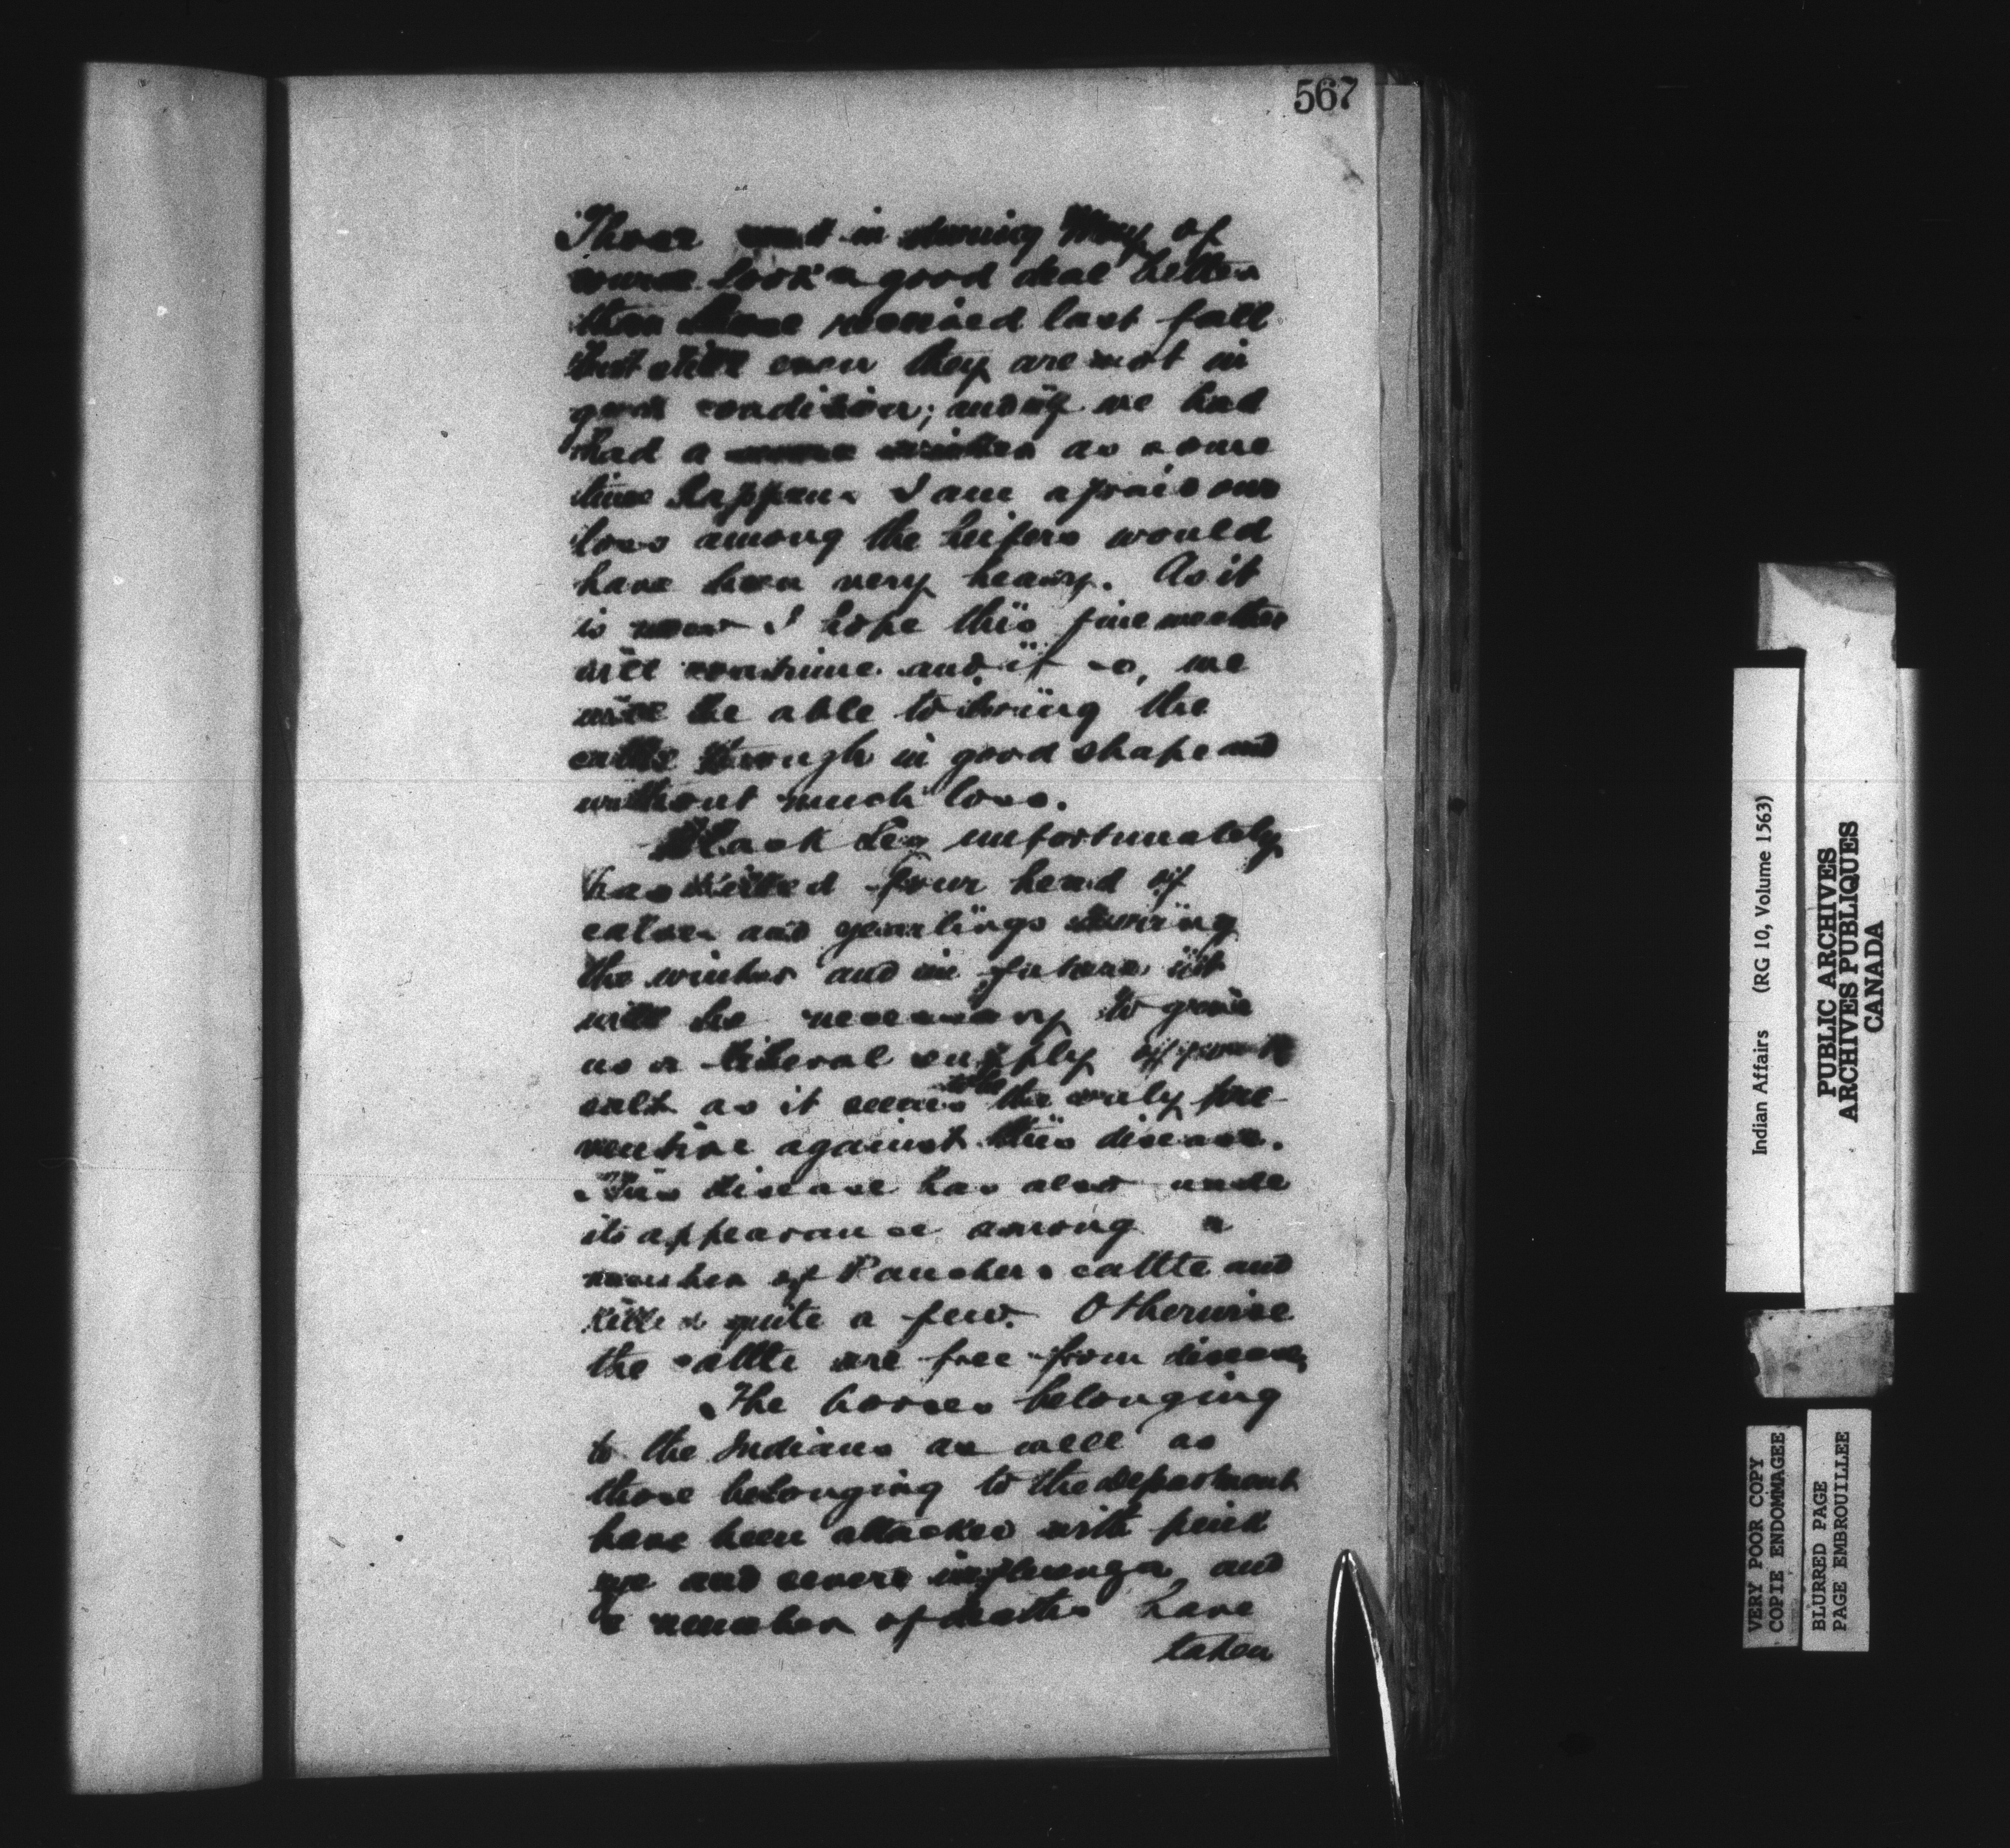 567
Those sent in during May of
course look a good deal better
than those received last fall
but still even they are not in
good condition; and if we had
had a winter as some
times happens I am afraid our
loss among the heifers would
have been very heavy. As it
is now I hope this fine weather
will continue and if so, we
will be able to bring the
cattle through in good shape and
without much loss.
Black Leg unfortunately
has killed four head of
calves and yearlings during
the winter and in future it
will be necessary to give
us a liberal supply of
salt as it seems to be the only pre-
ventive against this disease.
This disease has also made
its appearance among a
number of Ranchers cattle and
killed quite a few. Otherwise
the cattle are free from disease,
The horses belonging
to the Indians as well as
those belonging to the department
have been attacked with pink
eye and severe influenza and
a number of deaths have
taken
Indian Affairs (RG 10, Volume 1563)
PUBLIC ARCHIVES
ARCHIVES PUBLIQUES
CANADA
VERY POOR COPY
COPIE ENDOMMAGEE
BLURRED PAGE
PAGE EMBROUILLEE